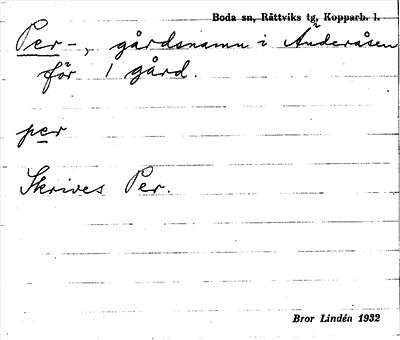 Boda sn, Rättviks tg, Kopparb. l.
Per-, gårdsnamn i Anderåsen
för 1 gård.
per
Skrives Per.
Bror Lindén 1932